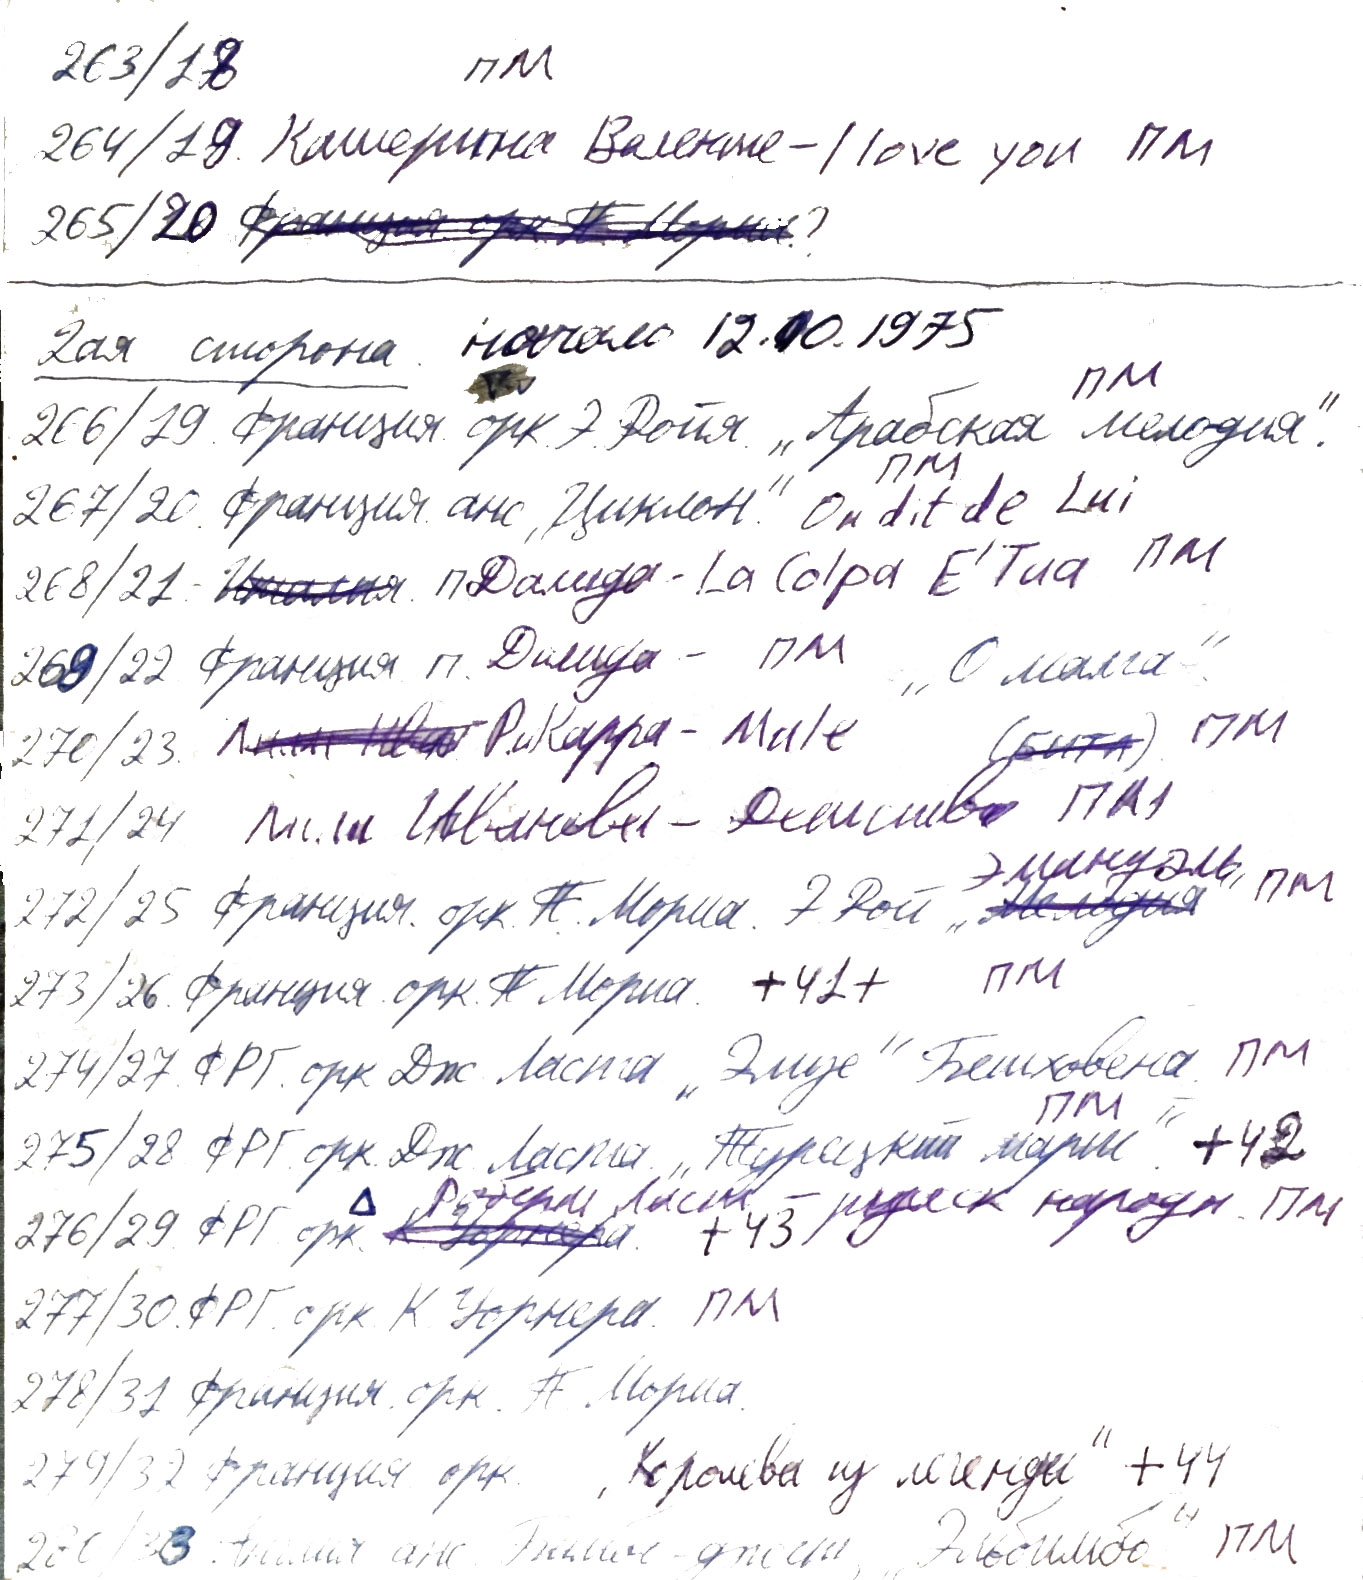 263/18 ПМ
264/19. Катерина Валенте – I love you ПМ
265/20 Франция орк П. Мориа?
2ая сторона. начало 12.10.1975
ПМ
266/19. Франция. орк. Э. Ройя. „Арабская мелодия".
ПМ
267/20. Франция. анс. „Циклон." On dit de Lui
268/21. Италия. п. Далида - La Colpa E' Tua ПМ
269/22 Франция п. Далида - ПМ „О мама".
270/23. Лили Ив Р. Карра - Male (Битл) ПМ
271/24 Лили Иванова – Детство ПМ
Эмануэль
272/25 Франция. орк. П. Мориа. Э. Рой „Мелодия" ПМ
273/26. Франция. орк. П. Мориа. +41+ ПМ
274/27 ФРГ. орк. Дж. Ласта „Элизе" Бетховена. ПМ
ПМ
275/28 ФРГ. орк. Дж. Ласта. „Турецкий марш". +42
Роберт Ласт – народн. ПМ
276/29 ФРГ орк. К. Уорнера. +43
277/30. ФРГ. орк. К. Уорнера. ПМ
278/31 Франция. орк. П. Мориа.
279/32 Франция. орк. „Королева из легенды" +44
280/33 Англия анс. „Эльбимбо" ПМ